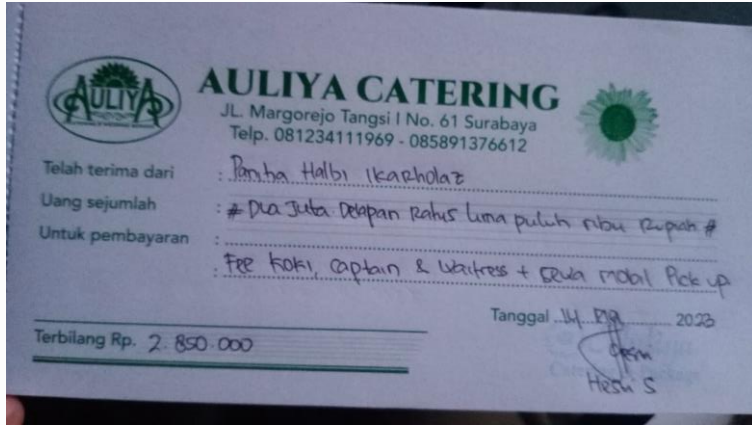 AULIYA
AULIYA CATERING
JL. Margorejo Tangsi I No. 61 Surabaya
Telp. 081234111969 - 085891376612
Telah terima dari : Panitia Halbi Ikarholaz
Uang sejumlah : # Dua Juta Delapan Ratus lima puluh ribu Rupiah #
Untuk pembayaran :
: Fee Koki, Captain & Waitress + sewa mobil Pick up
Tanggal 14 2023
Terbilang Rp. 2.850.000
Hesti S